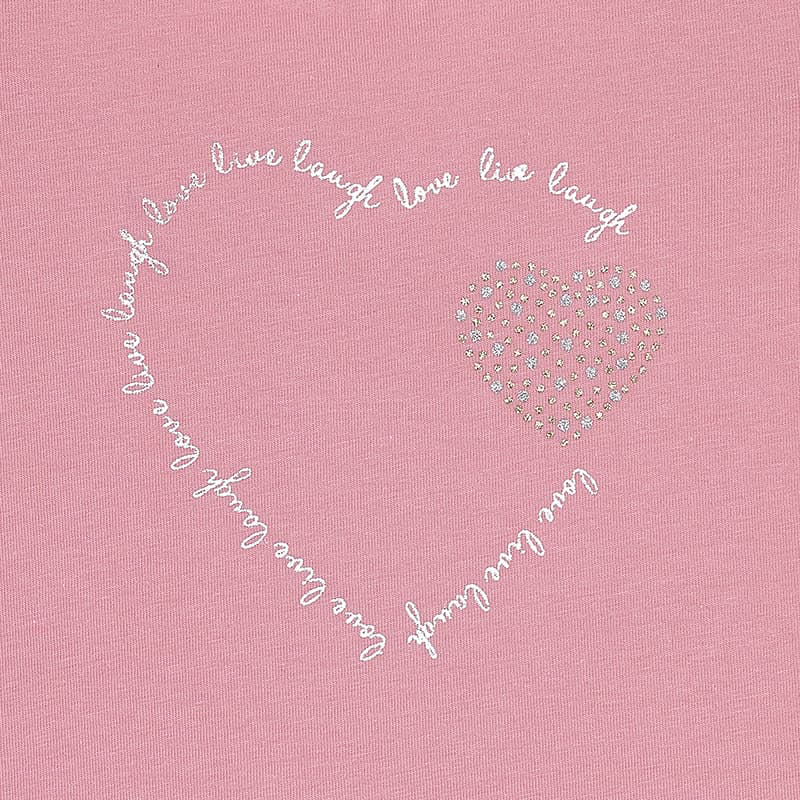 love live laugh love live laugh love live laugh love live laugh
love live laugh